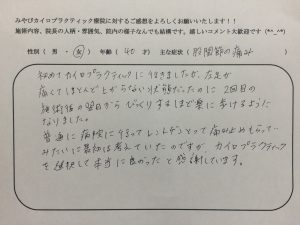 みやびカイロプラクティック療院に対するご感想をよろしくお願いいたします！！
施術内容、院長の人柄・雰囲気、院内の様子なんでも結構です。嬉しいコメント大歓迎です (*^_^*)
性別（ 男 ・ 女 ） 年齢（ 40 才） 主な症状（ 股関節の痛み
初めてカイロプラクティックに行きましたが、左足が
痛くてほとんど上がらない状態だったのに 2回目の
施術後の翌日からびっくりするほど楽に歩けるように
なりました。
普通に病院に行ってレントゲンとって痛み止めもらって…
みたいに最初は考えていたのですが、カイロプラクティック
を選択して本当に良かったと感謝しています。